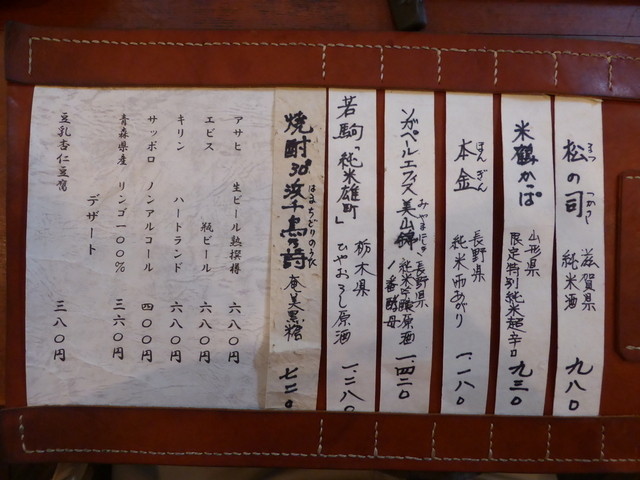 松の司 滋賀県 純米酒 九八〇
まつ つかさ
米鶴かっぱ 山形県 限定特別純米超辛口 九三〇
本金 長野県 純米 一.一八〇
ほん きん
ソガペールエフィス 美山錦 長野県 純米吟醸原酒 一.四二〇
1番酵母
若駒「純米雄町」 栃木県 ひやおろし原酒 一.二八〇
焼酎 30° 浜千鳥乃詩 奄美黒糖 七二〇
はまちどりのうた
アサヒ 生ビール熟撰樽 六八〇円
エビス 瓶ビール 六八〇円
キリン ハートランド 六八〇円
サッポロ ノンアルコール 四〇〇円
青森県産 リンゴ一〇〇% 三六〇円
デザート
豆乳杏仁豆腐 三八〇円